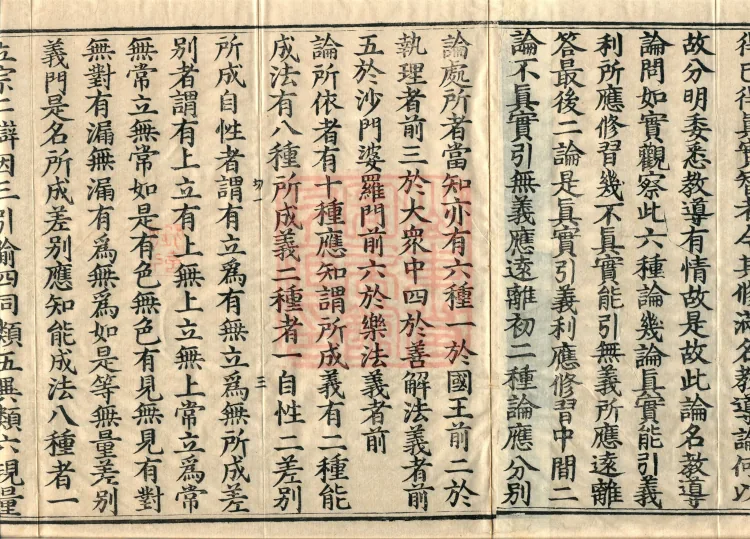 得已得眞實智者令其修滿名教導論何以
故分明委悉教導有情故是故此論名教導
論問如實觀察此六種論幾論眞實能引義
利所應修習幾不眞實能引無義所應遠離
答最後二論是眞實引義利應修習中間二
論不眞實引無義應遠離初二種論應分別
論處所者當知亦有六種一於國王前二於
執理者前三於大衆中四於善解法義者前
五於沙門婆羅門前六於樂法義者前
論所依者有十種應知謂所成義有二種能
成法有八種所成義二種者一自性二差別
三
所成自性者謂有立爲有無立爲無所成差
別者謂有上立有上無上立無上常立爲常
無常立無常如是有色無色有見無見有對
無對有漏無漏有爲無爲如是等無量差別
義門是名所成差別應知能成法八種者一
立宗二辯因三引喻四同類五異類六現量